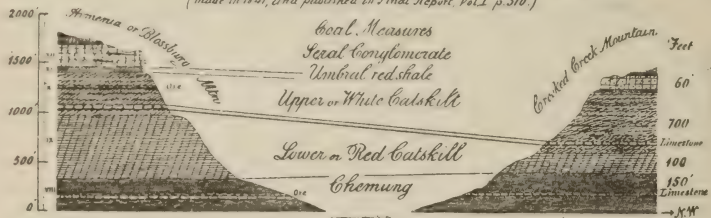 (made in 1841, and published in Final Report, Vol. I p. 310.)
2000'
Armenia or Blossburg Mtn
Coal Measures
Seral Conglomerate
Umbral red shale
Upper or White Catskill
Lower or Red Catskill
Chemung
1500
1000
500
0'
XII
X
IX
VIII
Ore
Ore
Crooked Creek Mountain
Feet
60'
700
Limestone
100
150'
Limestone
→ N.W